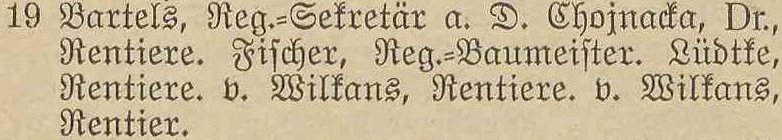 19 Bartels, Reg.=Sekretär a. D. Chojnacka, Dr.,
Rentiere. Fischer, Reg.=Baumeister. Lüdtke,
Rentiere. v. Wilkans, Rentiere. v. Wilkans,
Rentier.